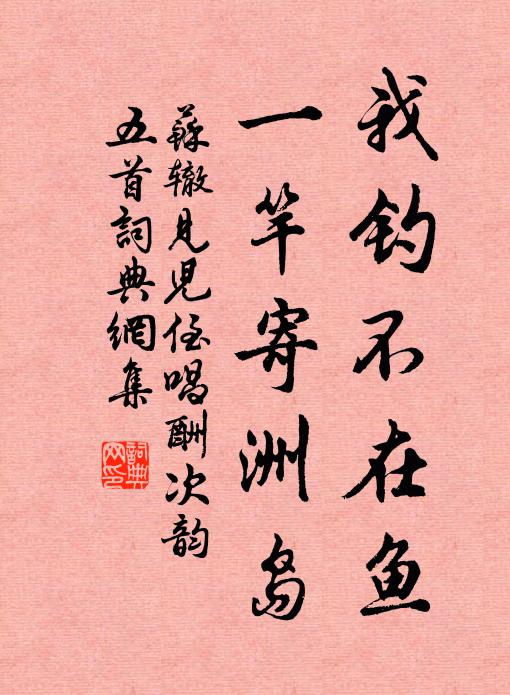 我钓不在鱼
一竿寄洲岛
蘇辙見児侄唱酬次韵
五首詞典網集
詞典网印